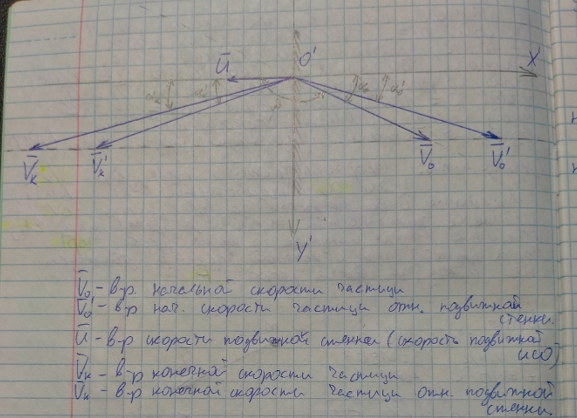 Ū O' X
α₀ α₀'
V̄ₖ V̄ₖ' V̄₀ V̄₀'
Y'
V̄₀ - в-р. начальной скорости частицы
V̄₀' - в-р нач. скорости частицы отн. подвижной
стенки.
Ū - в-р скорости подвижной стенки (скорость подвижной
ИСО).
V̄ₖ - в-р конечной скорости частицы
V̄ₖ' - в-р конечной скорости частицы отн. подвижной
стенки